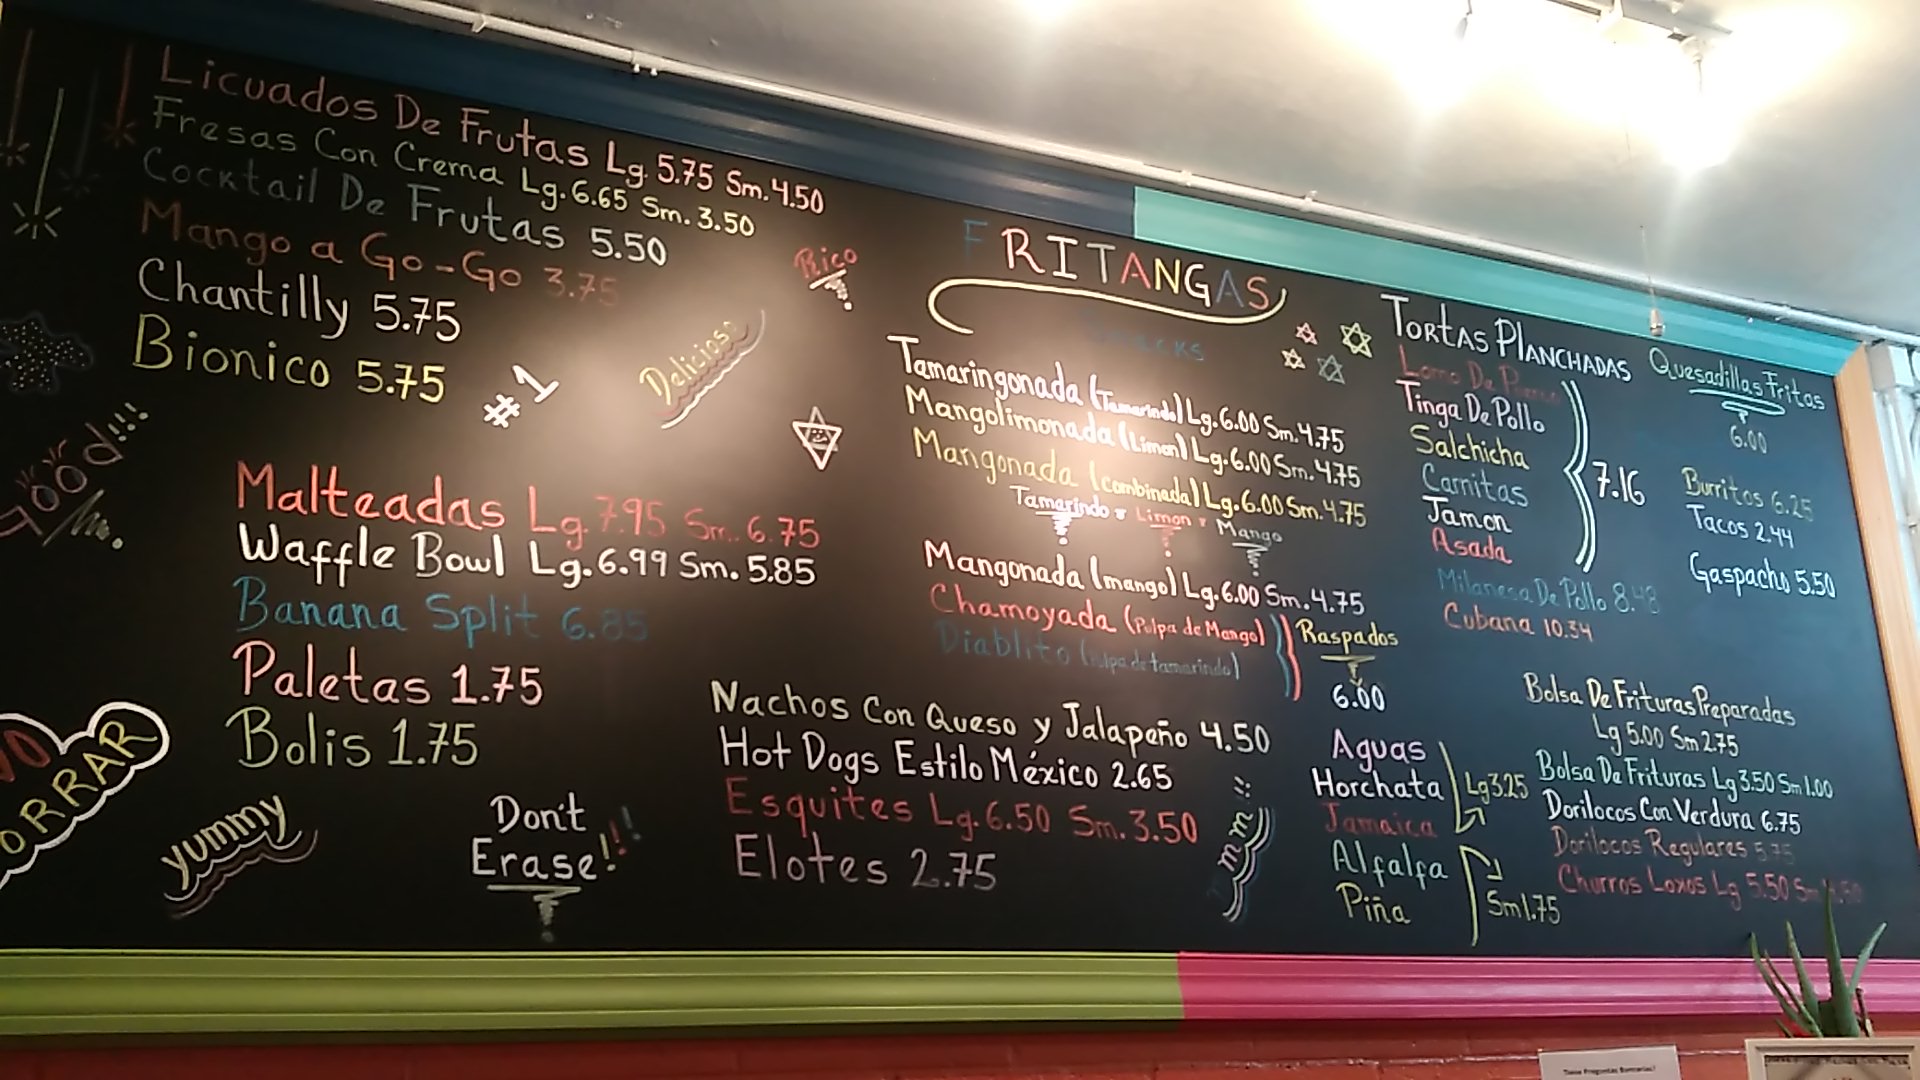 Licuados De Frutas Lg. 5.75 Sm. 4.50
Fresas Con Crema Lg. 6.65 Sm. 3.50
Cocktail De Frutas 5.50
Mango a Go-Go 3.75
Chantilly 5.75
Bionico 5.75
#1
Delicioso
Rico
Good!!!
Malteadas Lg. 7.95 Sm. 6.75
Waffle Bowl Lg. 6.99 Sm. 5.85
Banana Split 6.85
Paletas 1.75
Bolis 1.75
ORRAR
yummy
Don't
Erase!!!
FRITANGAS
Tamaringonada (Tamarindo) Lg. 6.00 Sm. 4.75
Mangolimonada (Limon) Lg. 6.00 Sm. 4.75
Mangonada (combinada) Lg. 6.00 Sm. 4.75
Tamarindo Limon Mango
Mangonada (mango) Lg. 6.00 Sm. 4.75
Chamoyada (Pulpa de Mango)
Diablito (Pulpa de tamarindo)
Raspados
6.00
Nachos Con Queso y Jalapeño 4.50
Hot Dogs Estilo México 2.65
Esquites Lg. 6.50 Sm. 3.50
Elotes 2.75
mm!!
Aguas
Horchata
Jamaica
Alfalfa
Piña
Lg 3.25
Sm 1.75
Tortas Planchadas
Lomo De
Tinga De Pollo
Salchicha
Carnitas
Jamon
Asada
7.16
Milanesa De Pollo 8.48
Cubana 10.34
Quesadillas Fritas
6.00
Burritos 6.25
Tacos 2.44
Gaspacho 5.50
Bolsa De Frituras Preparadas
Lg 5.00 Sm 2.75
Bolsa De Frituras Lg 3.50 Sm 1.00
Dorilocos Con Verdura 6.75
Dorilocos Regulares 5.75
Churros Locos Lg 5.50 Sm